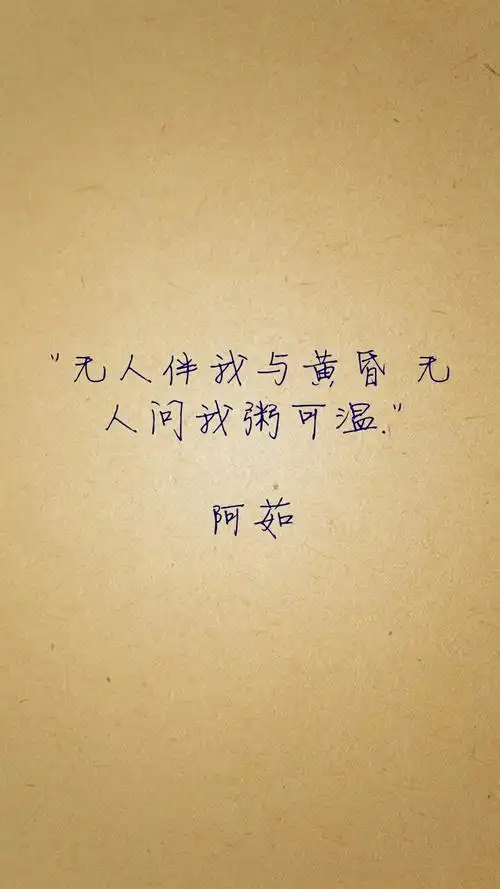 "无人伴我与黄昏 无
人问我粥可温."
阿茹